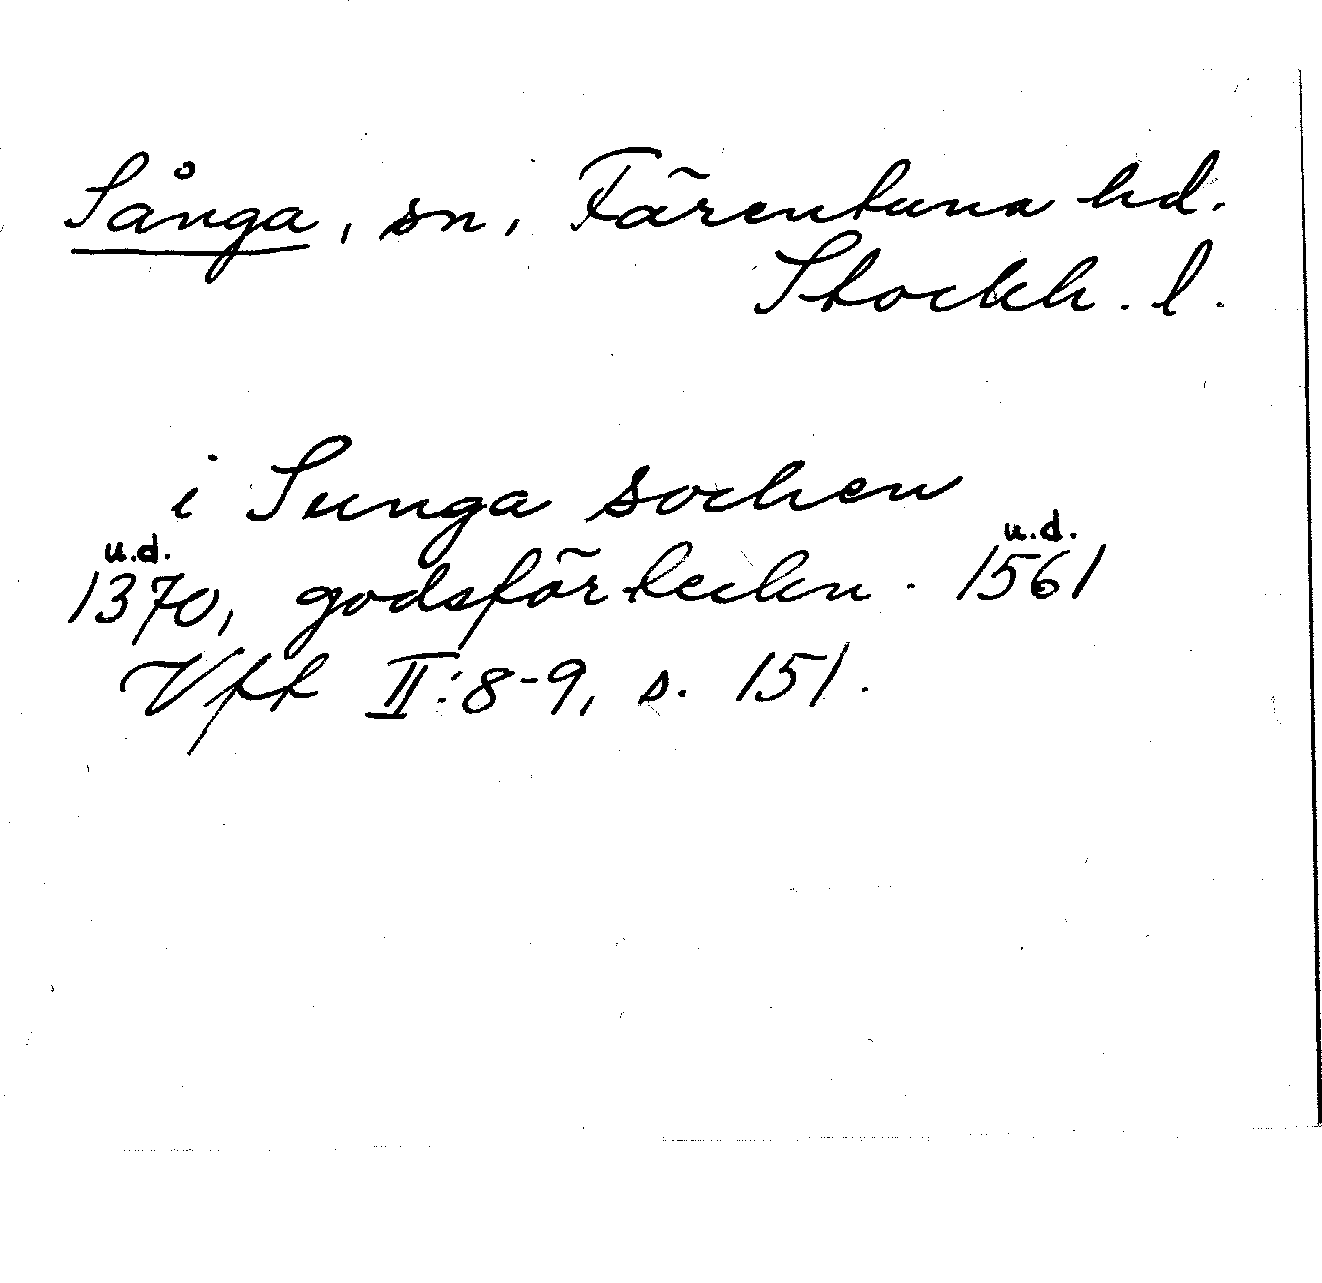 Sånga, sn, Färentuna hd.
Stockh. l.
i Sunga sochen
u.d. u.d.
1370, godsförteckn. 1561
Vff II:8-9, s. 151.